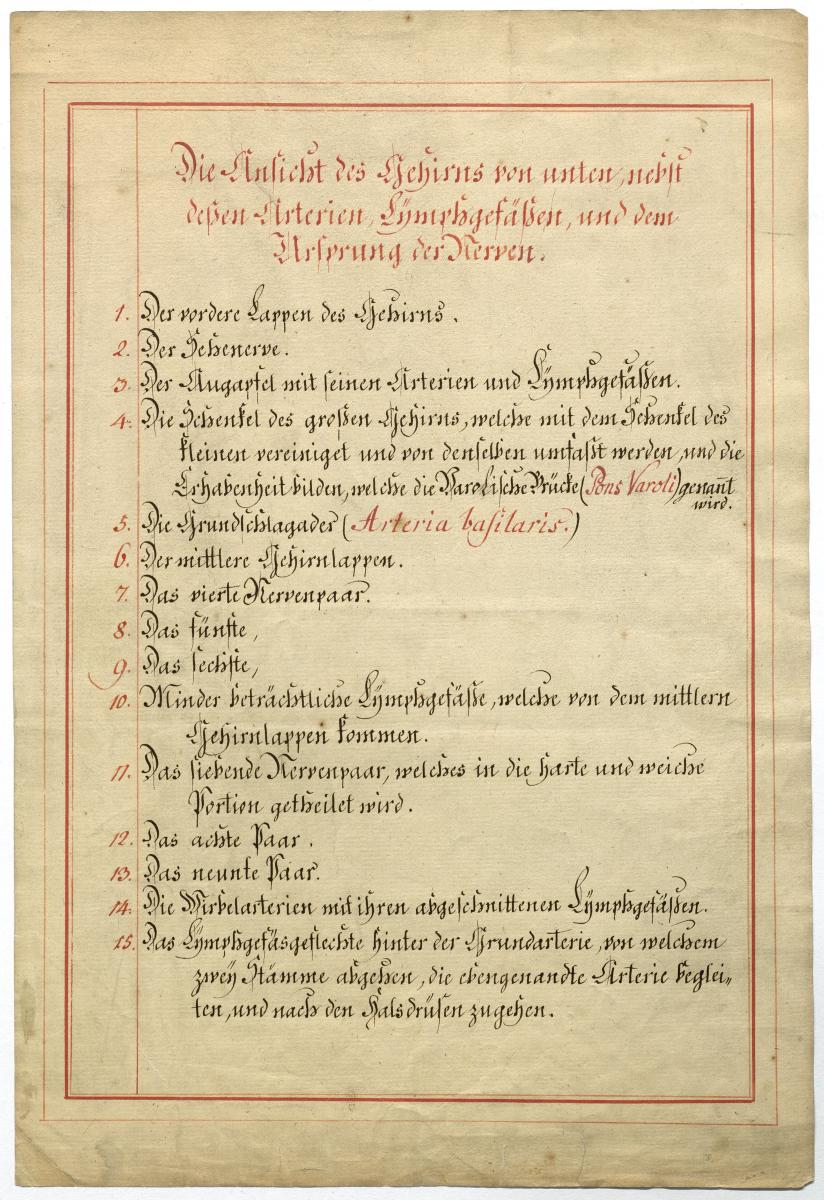 Die Ansicht des Gehirns von unten, nebst
deßen Arterien, Lÿmphgefäßen, und dem
Ursprung der Nerven.
1. Der vordere Lappen des Gehirns.
2. Der Sehenerve.
3. Der Augapfel mit seinen Arterien und Lÿmphgefäßen.
4. Die Schenkel des großen Gehirns, welche mit dem Schenkel des
kleinen vereiniget und von denselben umfaßt werden, und die
Erhabenheit bilden, welche die Varolische Brücke (Pons Varoli) genañt
wird.
5. Die Grundschlagader (Arteria basilaris.)
6. Der mittlere Gehirnlappen.
7. Das vierte Nervenpaar.
8. Das fünfte,
9. Das sechste,
10. Minder beträchtliche Lÿmphgefäße, welche von dem mittlern
Gehirnlappen kommen.
11. Das siebende Nervenpaar, welches in die harte und weiche
Portion getheilet wird.
12. Das achte Paar.
13. Das neunte Paar.
14. Die Wirbelarterien mit ihren abgeschnittenen Lÿmphgefäßen.
15. Das Lÿmphgefäsgeflechte hinter der Grundarterie, von welchem
zweÿ Stämme abgehen, die ebengenandte Arterie beglei⸗
ten, und nach den Halsdrüsen zugehen.